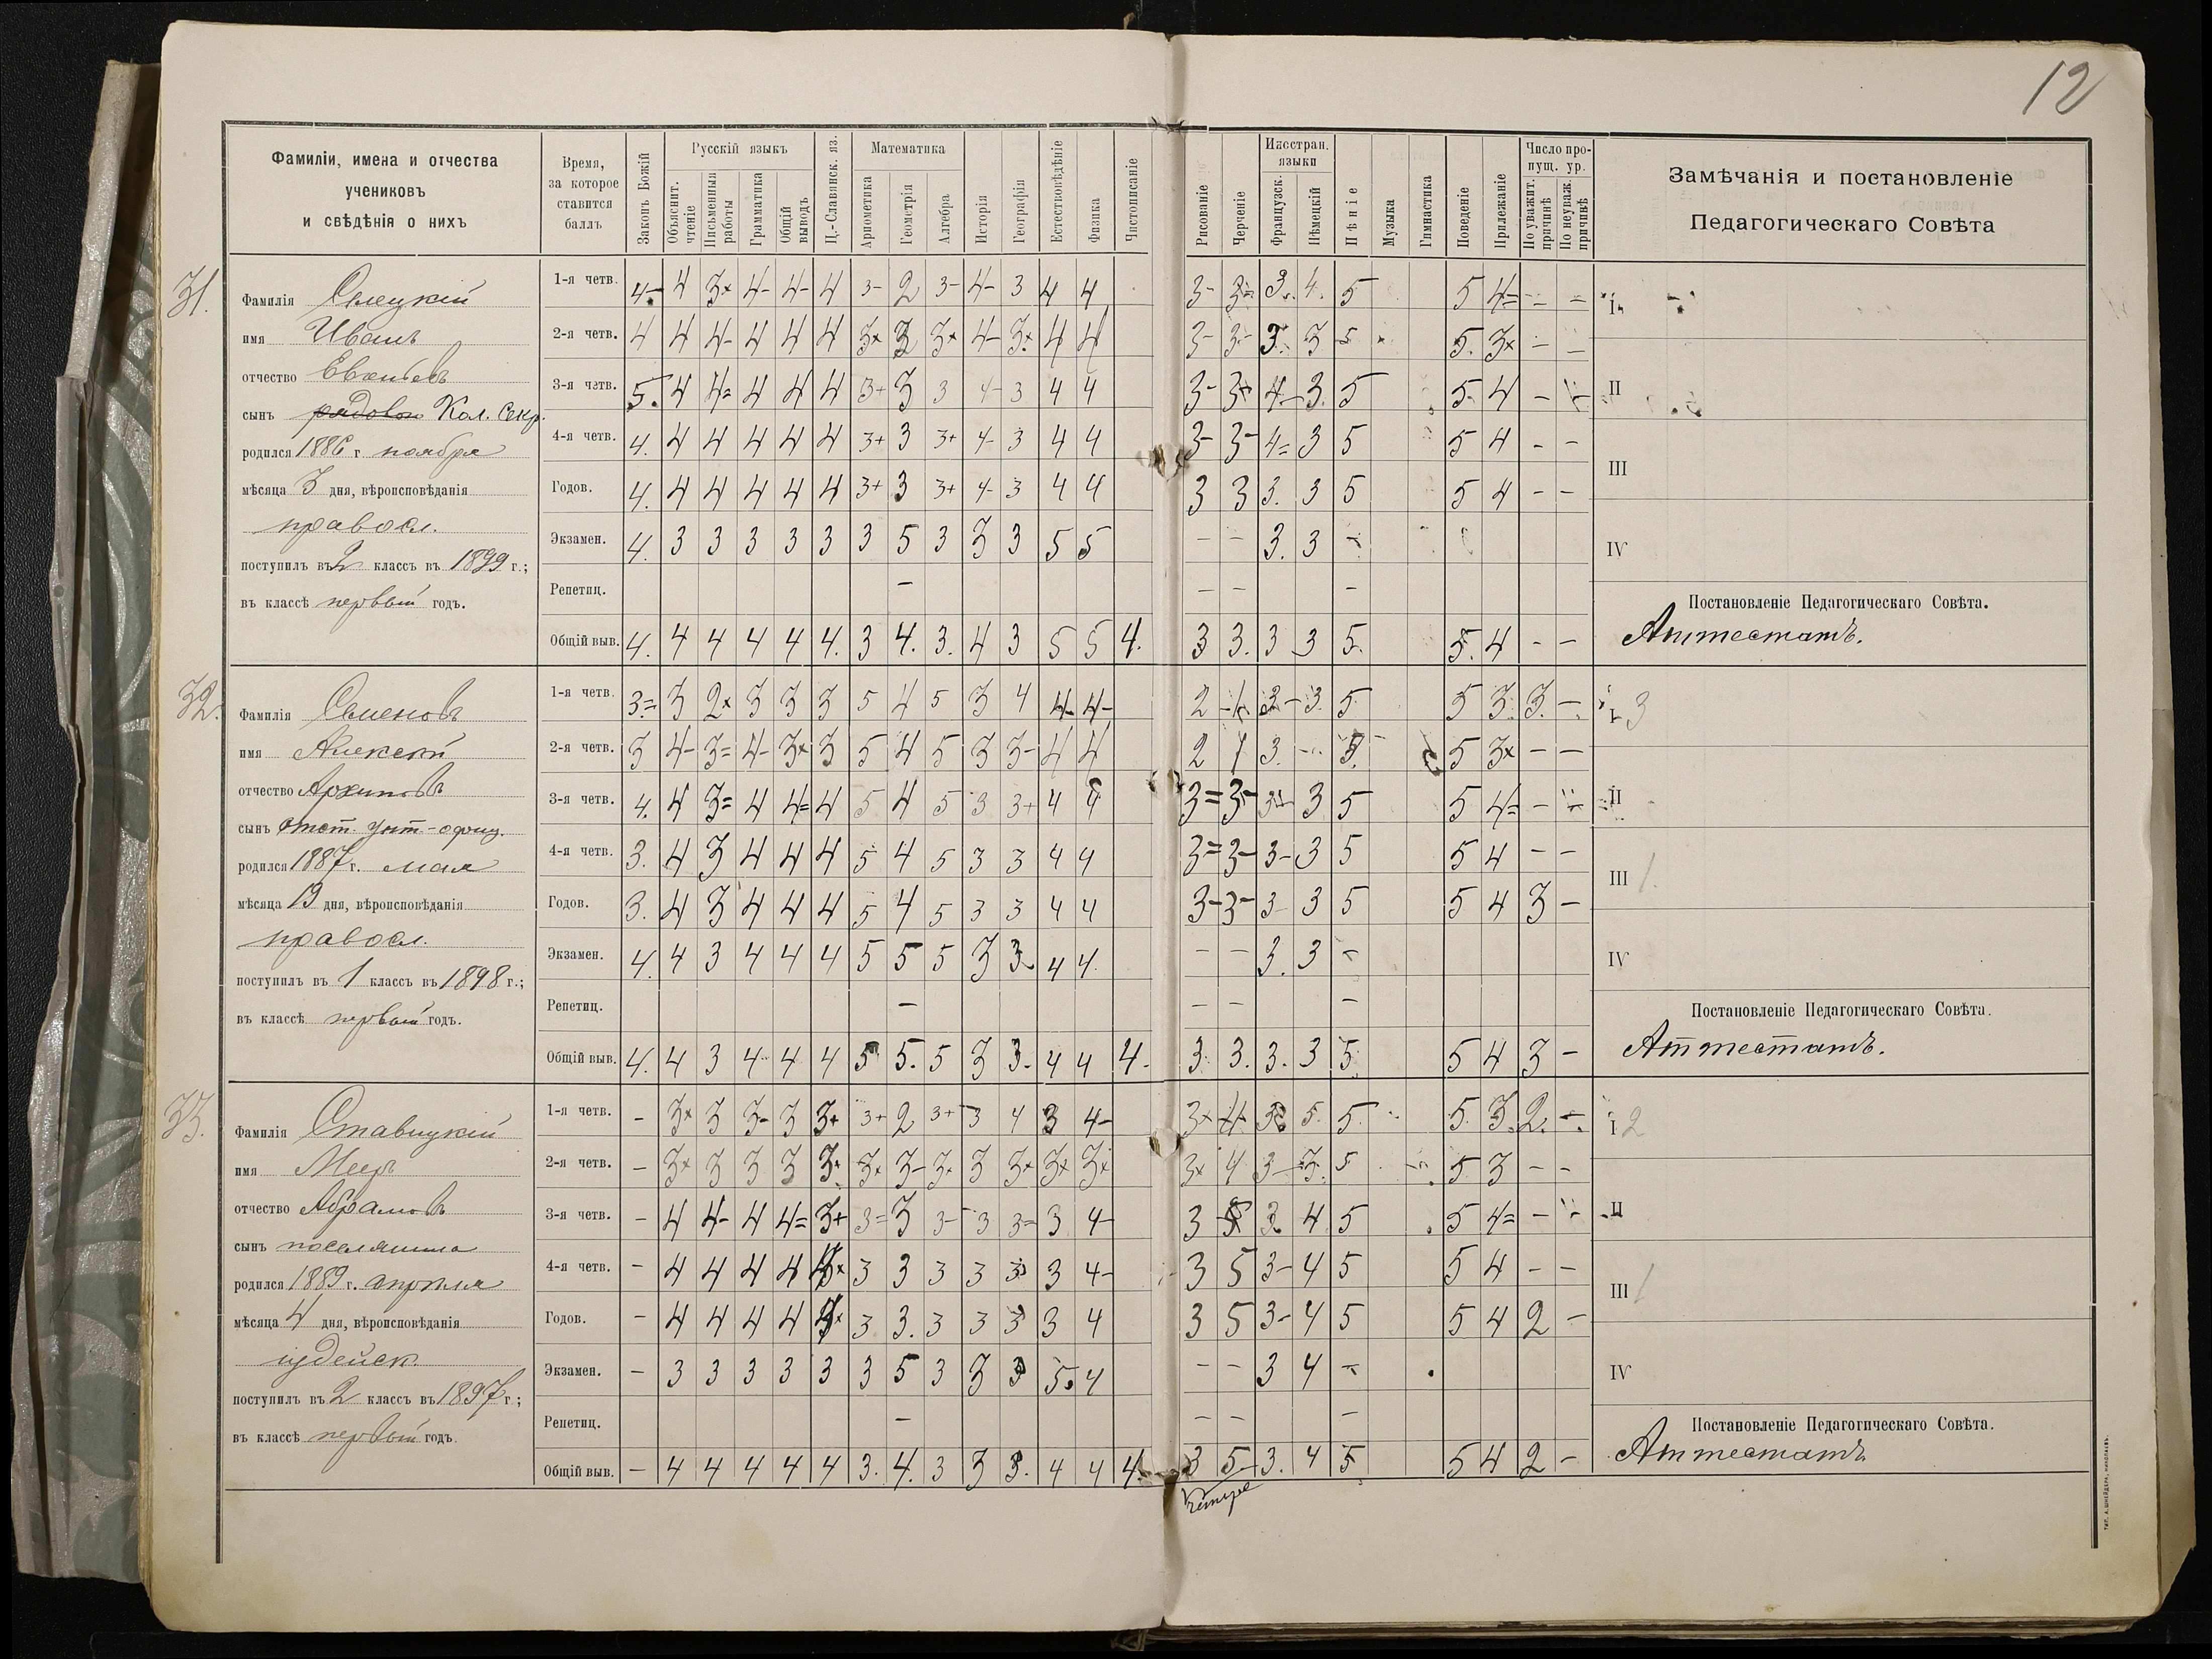 12
Фамиліи, имена и отчества
учениковъ
и свѣдѣнія о нихъ
Время,
за которое
ставится
баллъ
Законъ Божій
Русскій языкъ
Объяснит.
чтеніе
Письменныя
работы
Грамматика
Общій
выводъ
Ц.-Славянск. яз.
Математика
Ариѳметика
Геометрія
Алгебра
Исторія
Географія
Естествовѣдѣніе
Физика
Чистописаніе
Рисованіе
Черченіе
Иностран.
языки
Французск.
Нѣмецкій
Пѣніе
Музыка
Гимнастика
Поведеніе
Прилежаніе
Число про-
пущ. ур.
По уважит.
причинѣ
По неуваж.
причинѣ
Замѣчанія и постановленіе
Педагогическаго Совѣта
31.
Фамилія
имя Иванъ
отчество
сынъ Кол. Секр.
родился 1886 г ноября
мѣсяца 3 дня, вѣроисповѣданія
правосл.
поступилъ въ 2 классъ въ 1899 г.;
въ классѣ первый годъ.
1-я четв. 4- 4 3× 4- 4- 4 3- 2 3- 4- 3 4 4 3- 3= 3. 4. 5 5 4= - -
2-я четв. 4 4 4- 4 4 4 3× 3 3× 4- 3× 4 4 3- 3- 3. 3 5 5. 3× - -
3-я четв. 5. 4 4= 4 4 4 3+ 3 3 4- 3 4 4 3- 3× 4- 3. 5 5 4 -
4-я четв. 4. 4 4 4 4 4 3+ 3 3+ 4- 3 4 4 3- 3- 4= 3 5 5 4 - -
Годов. 4. 4 4 4 4 4 3+ 3 3+ 4- 3 4 4 3 3 3. 3 5 5 4 - -
Экзамен. 4. 3 3 3 3 3 3 5 3 3 3 5 5 - - 3. 3 -
Репетиц. - - - -
Общій выв. 4. 4 4 4 4 4. 3 4. 3. 4 3 5 5 4. 3 3. 3 3 5. 5. 4 - -
I
II
III
IV
Постановленіе Педагогическаго Совѣта.
Аттестатъ.
32.
Фамилія Семеновъ
имя Алексѣй
отчество Архиповъ
сынъ отст. унт-офиц.
родился 1887 г. мая
мѣсяца 13 дня, вѣроисповѣданія
правосл.
поступилъ въ 1 классъ въ 1898 г.;
въ классѣ первый годъ.
1-я четв. 3= 3 2× 3 3 3 5 4 5 3 4 4- 4- 2 3- 3. 5 5 3. 3. -
2-я четв. 3 4- 3= 4- 3× 3 5 4 5 3 3- 4 4 2 3. 5 3× - -
3-я четв. 4. 4 3= 4 4= 4 5 4 5 3 3+ 4 4 3= 3- 3 5 5 4= -
4-я четв. 3. 4 3 4 4 4 5 4 5 3 3 4 4 3= 3- 3- 3 5 5 4 - -
Годов. 3. 4 3 4 4 4 5 4 5 3 3 4 4 3- 3- 3 3 5 5 4 3 -
Экзамен. 4. 4 3 4 4 4 5 5 5 3 3 4 4. - - 3. 3 -
Репетиц. - - - -
Общій выв. 4. 4 3 4 4 4 5 5. 5 3 3. 4 4 4. 3. 3. 3. 3 5. 5 4 3 -
I 3
II
III 1.
IV
Постановленіе Педагогическаго Совѣта.
Аттестатъ.
33.
Фамилія Ставицкій
имя Меер
отчество Абрамовъ
сынъ поселянина
родился 1889 г. апрѣля
мѣсяца 4 дня, вѣроисповѣданія
іудейск.
поступилъ въ 2 классъ въ 1897 г;
въ классѣ первый годъ.
1-я четв. - 3× 3 3- 3 3+ 3+ 2 3+ 3 4 3 4- 3× 4 5. 5. 5. 3. 2. -
2-я четв. - 3× 3 3 3 3. 3× 3- 3× 3 3× 3× 3× 3× 4 3- 3. 5 5 3 - -
3-я четв. - 4 4- 4 4= 3+ 3= 3 3- 3 3= 3 4- 3 5 3 4 5 5 4= -
4-я четв. - 4 4 4 4 3 3 3 3 3 3 4- 3 5 3- 4 5 5 4 - -
Годов. - 4 4 4 4 3 3. 3 3 3 3 4 3 5 3- 4 5 5 4 2 -
Экзамен. - 3 3 3 3 3 3 5 3 3 3 5. 4 - - 3 4 -
Репетиц. - - - -
Общій выв. - 4 4 4 4 4 3. 4. 3 3 3. 4 4 4. 3 5 3. 4 5 5 4 2 -
I 2
II
III 1
IV
Постановленіе Педагогическаго Совѣта.
Аттестатъ.